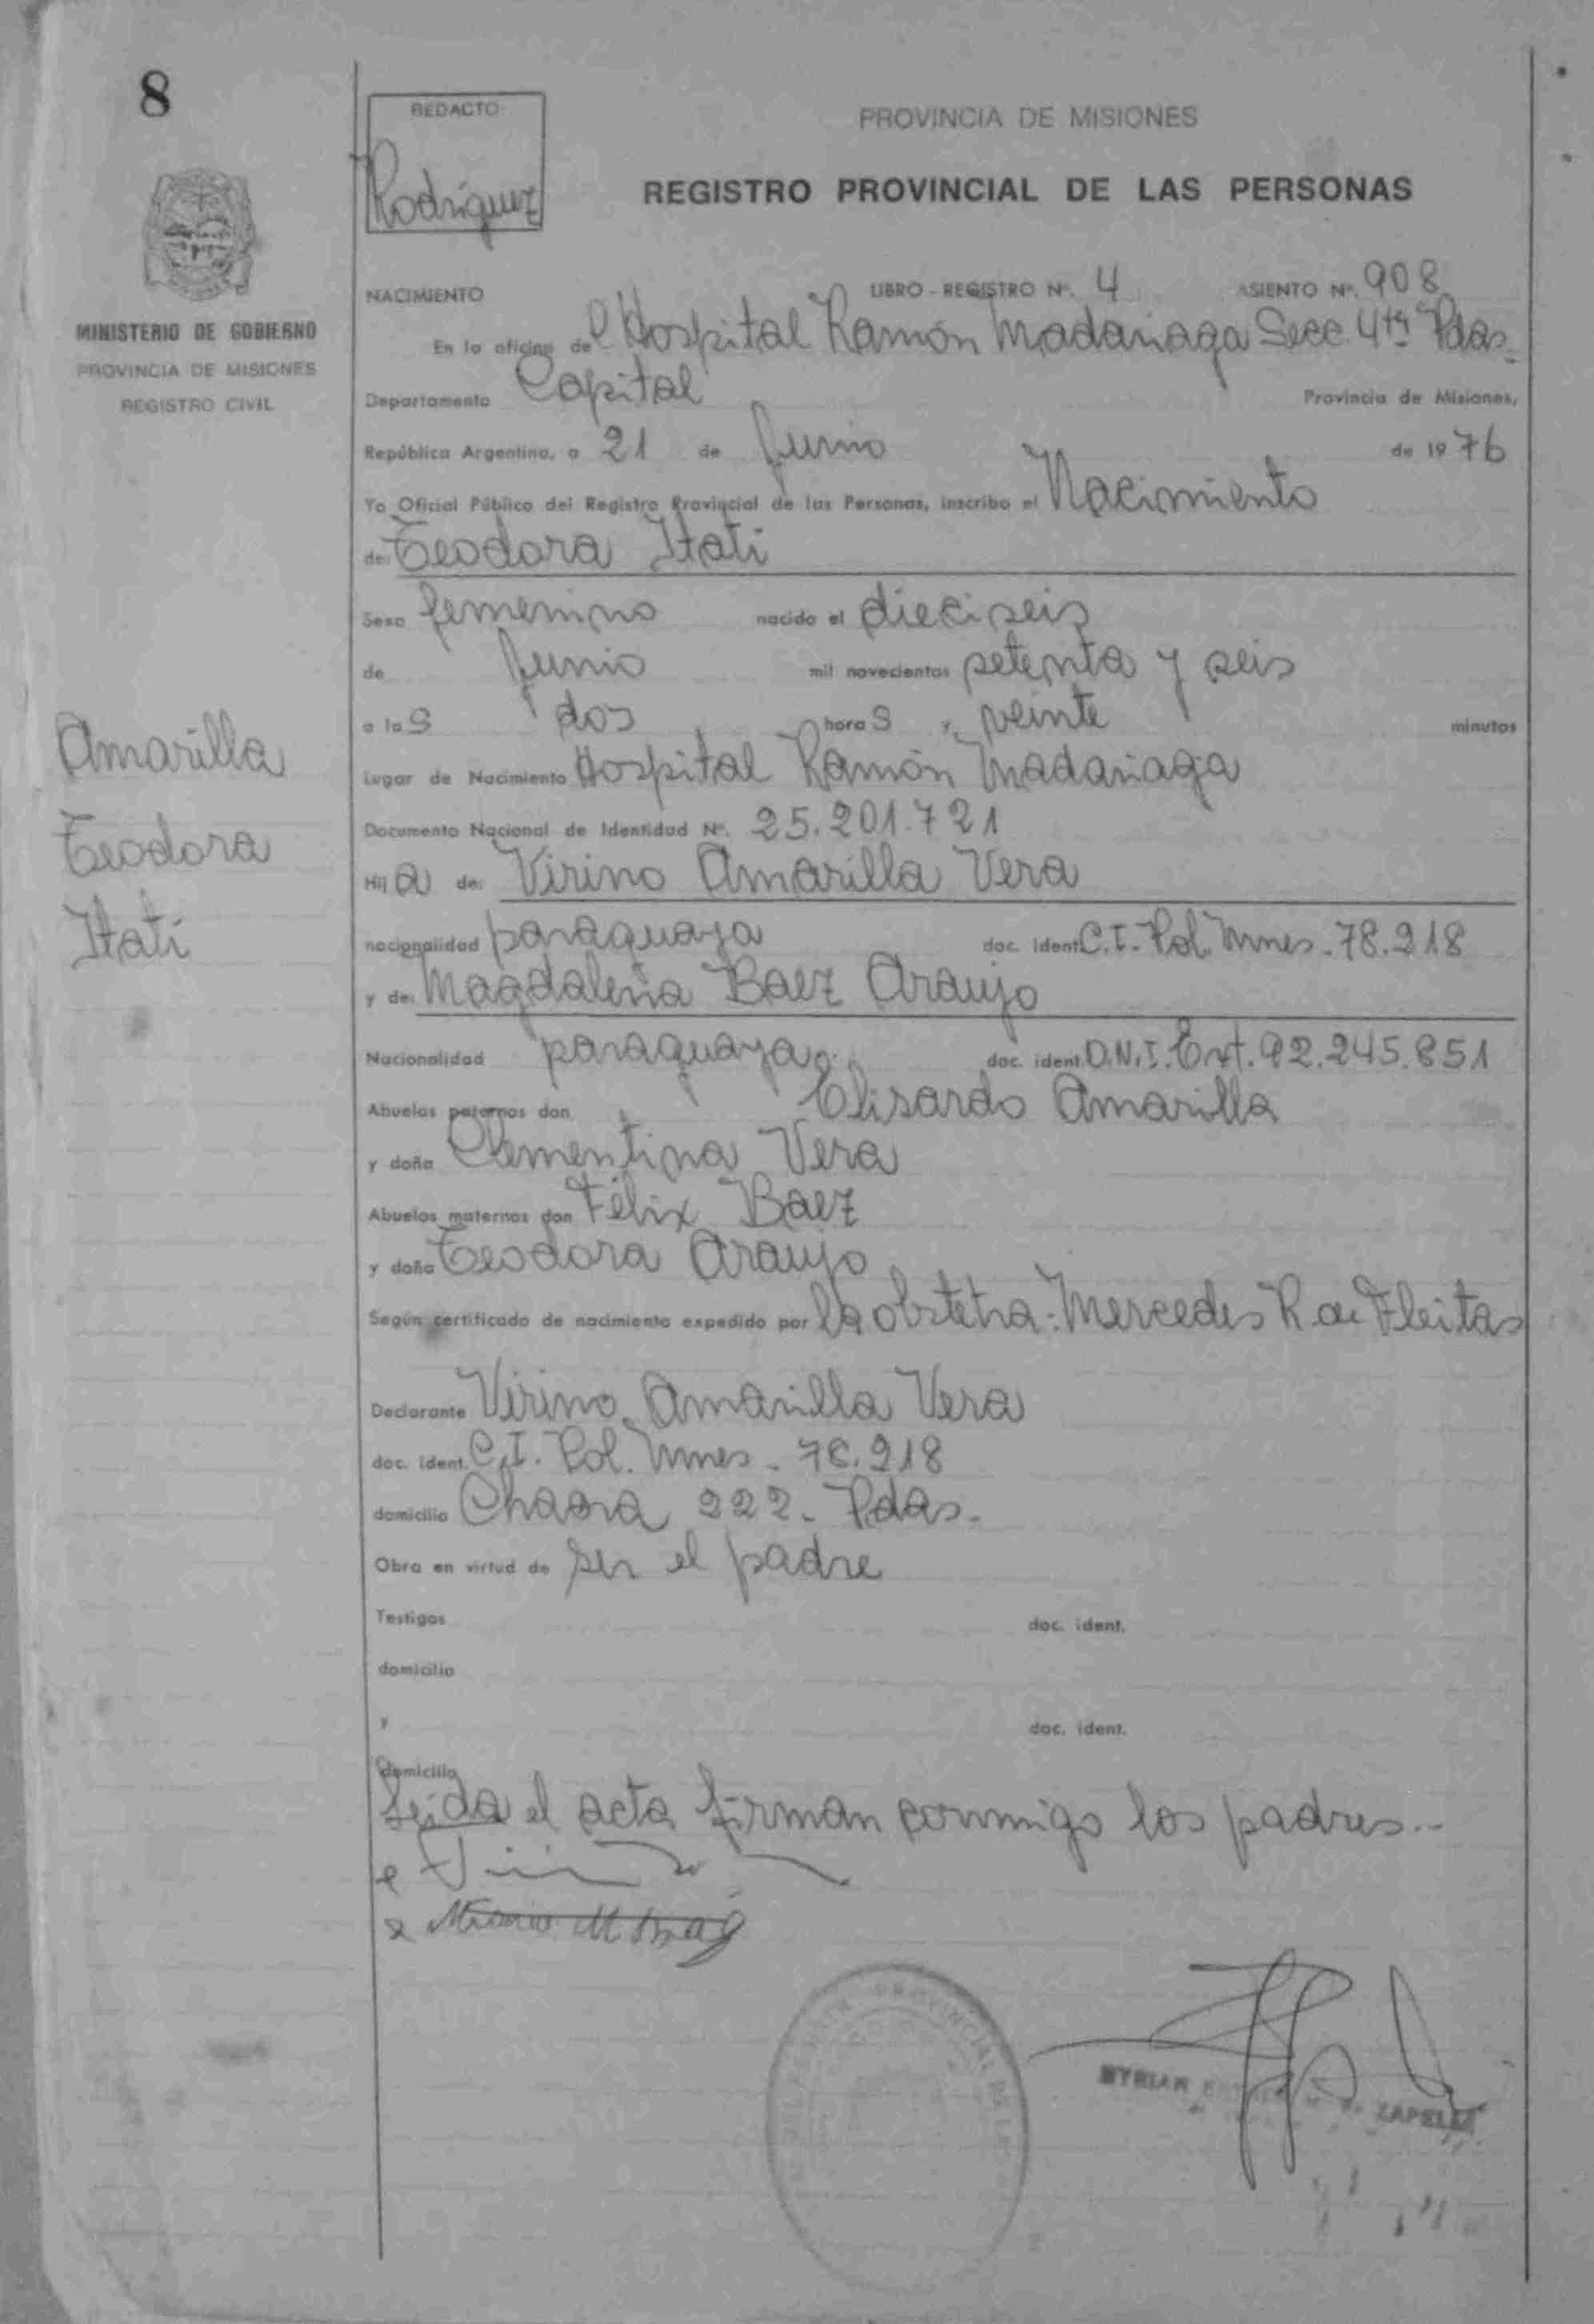 8
REDACTO
Rodríguez
PROVINCIA DE MISIONES
REGISTRO PROVINCIAL DE LAS PERSONAS
MINISTERIO DE GOBIERNO
PROVINCIA DE MISIONES
REGISTRO CIVIL
NACIMIENTO LIBRO - REGISTRO Nº. 4 ASIENTO Nº. 908
En la oficina del Hospital Ramón Madariaga Secc 4ta Pdas
Departamento Capital Provincia de Misiones,
República Argentina, a 21 de Junio de 1976
Yo Oficial Público del Registro Provincial de las Personas, inscribo el Nacimiento
de: Teodora Itatí
Sexo femenino nacido el dieciseis
de Junio mil novecientos setenta y seis
a las dos horas y veinte minutos
Lugar de Nacimiento Hospital Ramón Madariaga
Documento Nacional de Identidad Nº. 25.201.721
Hija de: Virino Amarilla Vera
nacionalidad paraguaya doc. ident. C.I. Pol. Mnes. 78.218
y de: Magdalena Baez Araujo
Nacionalidad paraguaya doc. ident. D.N.I. Ext. 92.245.851
Abuelos paternos don Elisardo Amarilla
y doña Clementina Vera
Abuelos maternos don Félix Baez
y doña Teodora Araujo
Según certificado de nacimiento expedido por la obstetra: Mercedes R de Fleitas
Declarante Virino Amarilla Vera
doc. ident. C.I. Pol. Mnes - 78.218
domicilio Chacra 222 - Pdas.
Obra en virtud de ser el padre
Testigos doc. ident.
domicilio
y doc. ident.
domicilio
Leida el acta firman conmigo los padres.-
Amarilla
Teodora
Itatí
MYRIAN
ZAPELLI